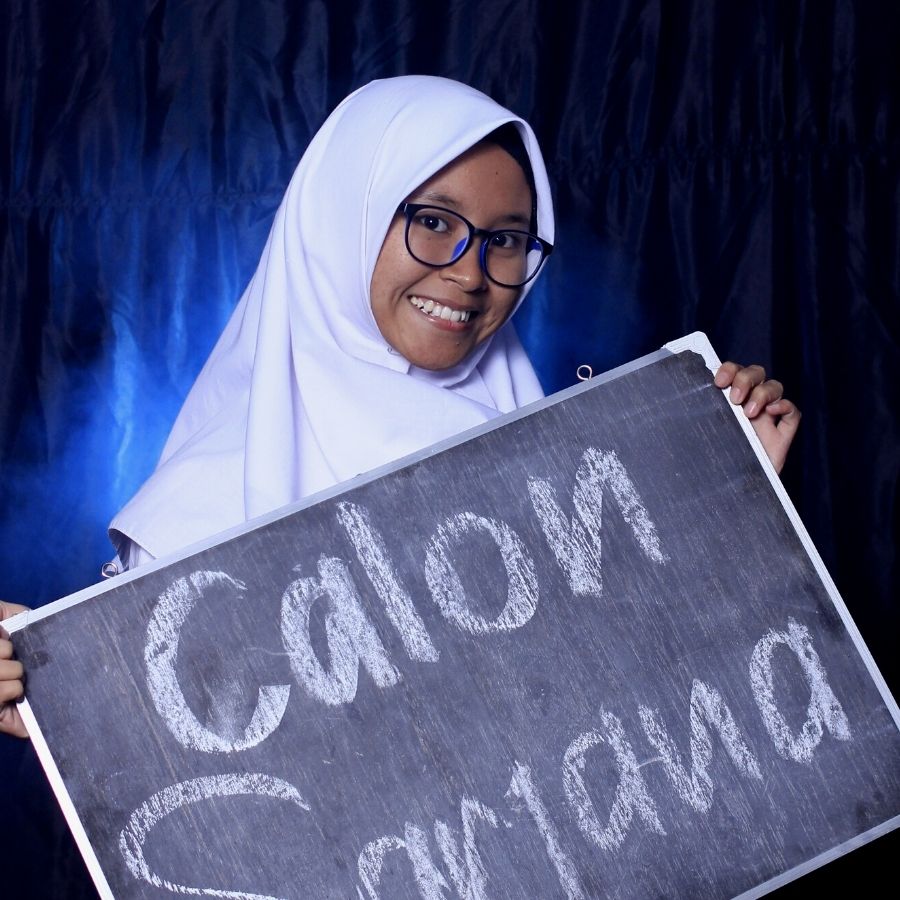 Calon
Sarjana